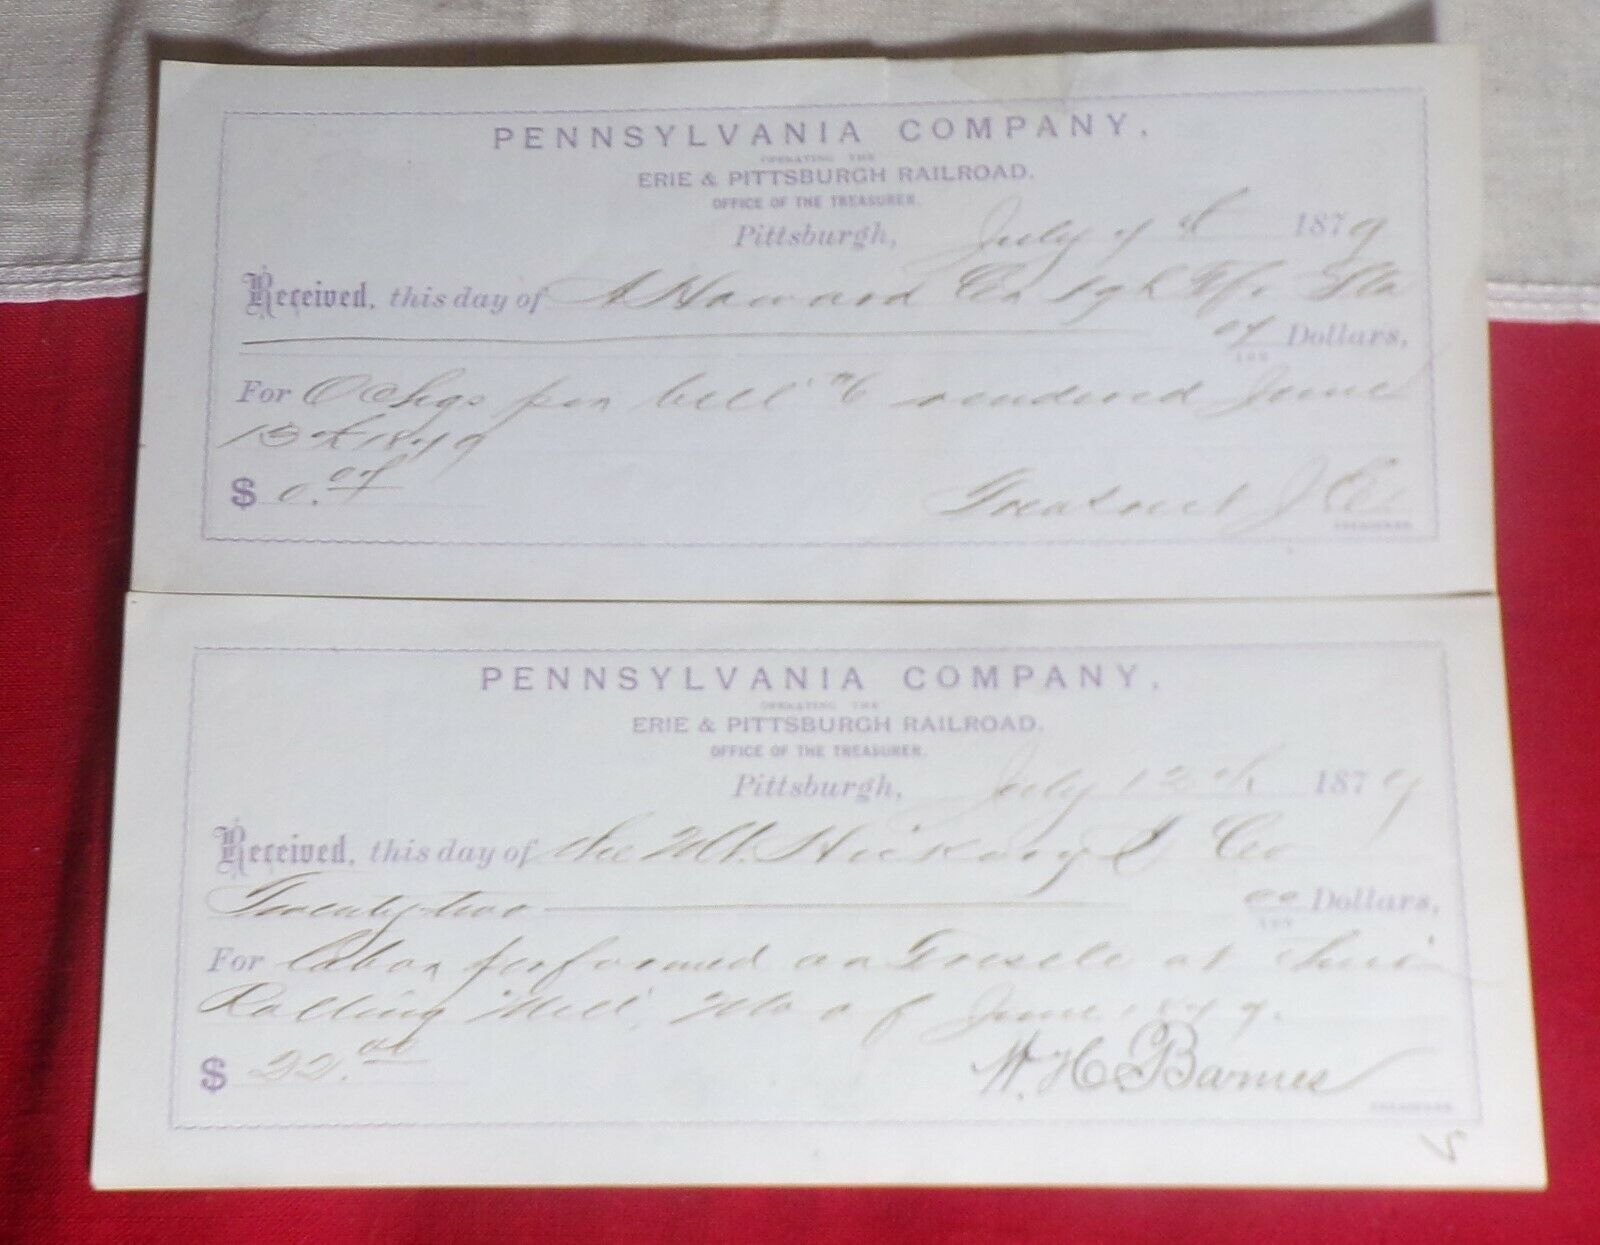 PENNSYLVANIA COMPANY,
OPERATING THE
ERIE & PITTSBURGH RAILROAD.
OFFICE OF THE TREASURER.
Pittsburgh, July 7th 1879
Received, this day of A Howard Sta
07/100 Dollars,
For per bill rendered June
1879
$ 0.07
J
TREASURER.
PENNSYLVANIA COMPANY,
OPERATING THE
ERIE & PITTSBURGH RAILROAD.
OFFICE OF THE TREASURER.
Pittsburgh, July 12th 1879
Received, this day of Hickory Co
Twenty two 00/100 Dollars,
For labor performed on Tresle at their
Rolling Mill, Mo of June 1879.
$ 22.00
W. H. Barnes
TREASURER.